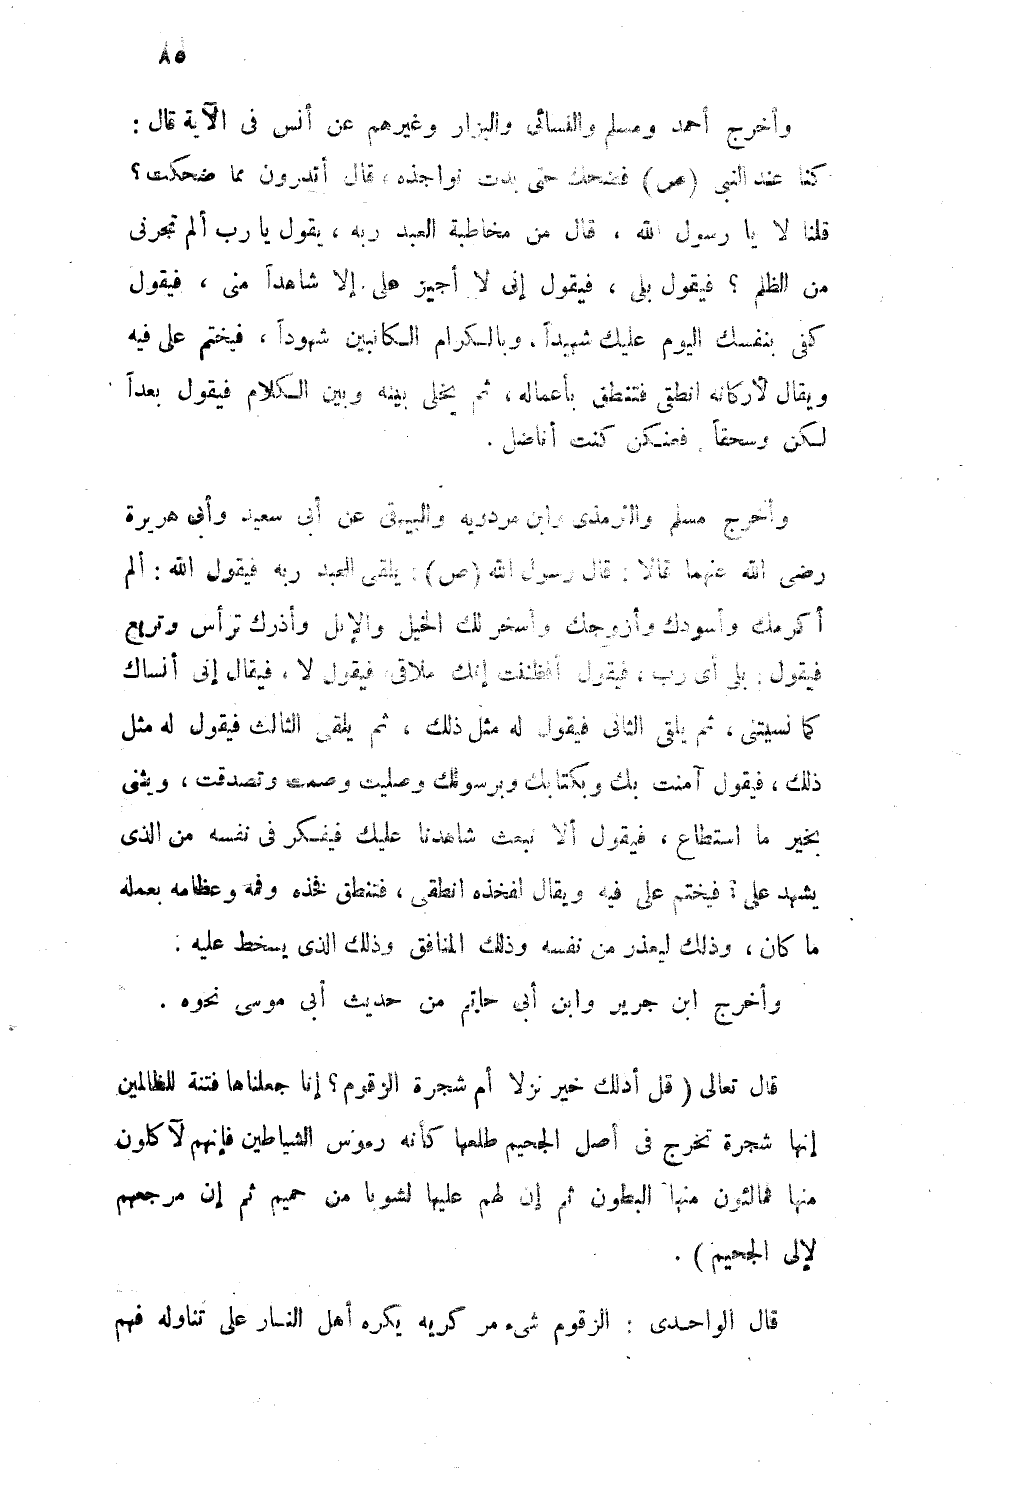 ٨٥
وأخرج أحمد ومسلم والنسائى والبزار وغيرهم عن أنس فى الآية قال :
كنا عند النبى (ص) فضحك حتى بدت نواجذه ، قال أتدرون مما ضحكت ؟
قلنا لا يا رسول الله ، قال من مخاطبة العبد ربه ، يقول يا رب ألم تجرنى
من الظلم ؟ فيقول بلى ، فيقول إنى لا أجيز على إلا شاهداً منى ، فيقول
كفى بنفسك اليوم عليك شهيداً . وبالكرام الكاتبين شهوداً ، فيختم على فيه
ويقال لأركانه انطقى فتنطق بأعماله ، ثم يخلى بينه وبين الكلام فيقول بعداً
لكن وسحقاً فعنكن كنت أناضل .
وأخرج مسلم والترمذى وابن مردويه والبيهقى عن أبى سعيد وأبى هريرة
رضى الله عنهما قالا : قال رسول الله (ص) : يلقى العبد ربه فيقول الله : ألم
أكرمك وأسودك وأزوجك وأسخر لك الخيل والإبل وأذرك ترأس وتربع
فيقول : بلى أى رب ، فيقول أفظننت إنك ملاقى فيقول لا ، فيقال إنى أنساك
كما نسيتنى ، ثم يلقى الثانى فيقول له مثل ذلك ، ثم يلقى الثالث فيقول له مثل
ذلك ، فيقول آمنت بك وبكتابك وبرسولك وصليت وصمت وتصدقت ، ويثنى
بخير ما استطاع ، فيقول ألا نبعث شاهدنا عليك فيفكر فى نفسه من الذى
يشهد على ؟ فيختم على فيه ويقال لفخذه انطقى ، فتنطق فخذه وفمه وعظامه بعمله
ما كان ، وذلك ليعذر من نفسه وذلك المنافق وذلك الذى يسخط عليه :
وأخرج ابن جرير وابن أبى حاتم من حديث أبى موسى نحوه .
قال تعالى ( قل أدلك خير نزلا أم شجرة الزقوم ؟ إنا جعلناها فتنة للظالمين
إنها شجرة تخرج فى أصل الجحيم طلعها كأنه رءوس الشياطين فإنهم لآكلون
منها فمالئون منها البطون ثم إن لهم عليها لشوبا من حميم ثم إن مرجعهم
لإلى الجحيم ) .
قال الواحدى : الزقوم شىء مر كريه يكره أهل النار على تناوله فهم